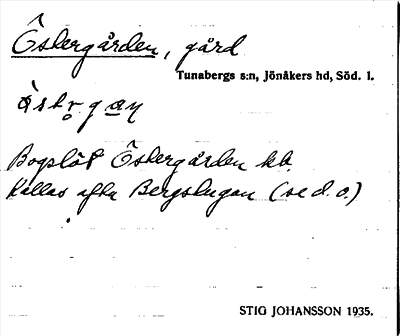 Östergården, gård
Tunabergs s:n, Jönåkers hd, Söd. l.
Östergården kb.
Kallas ofta Bergstugan (se d. o.)
STIG JOHANSSON 1935.